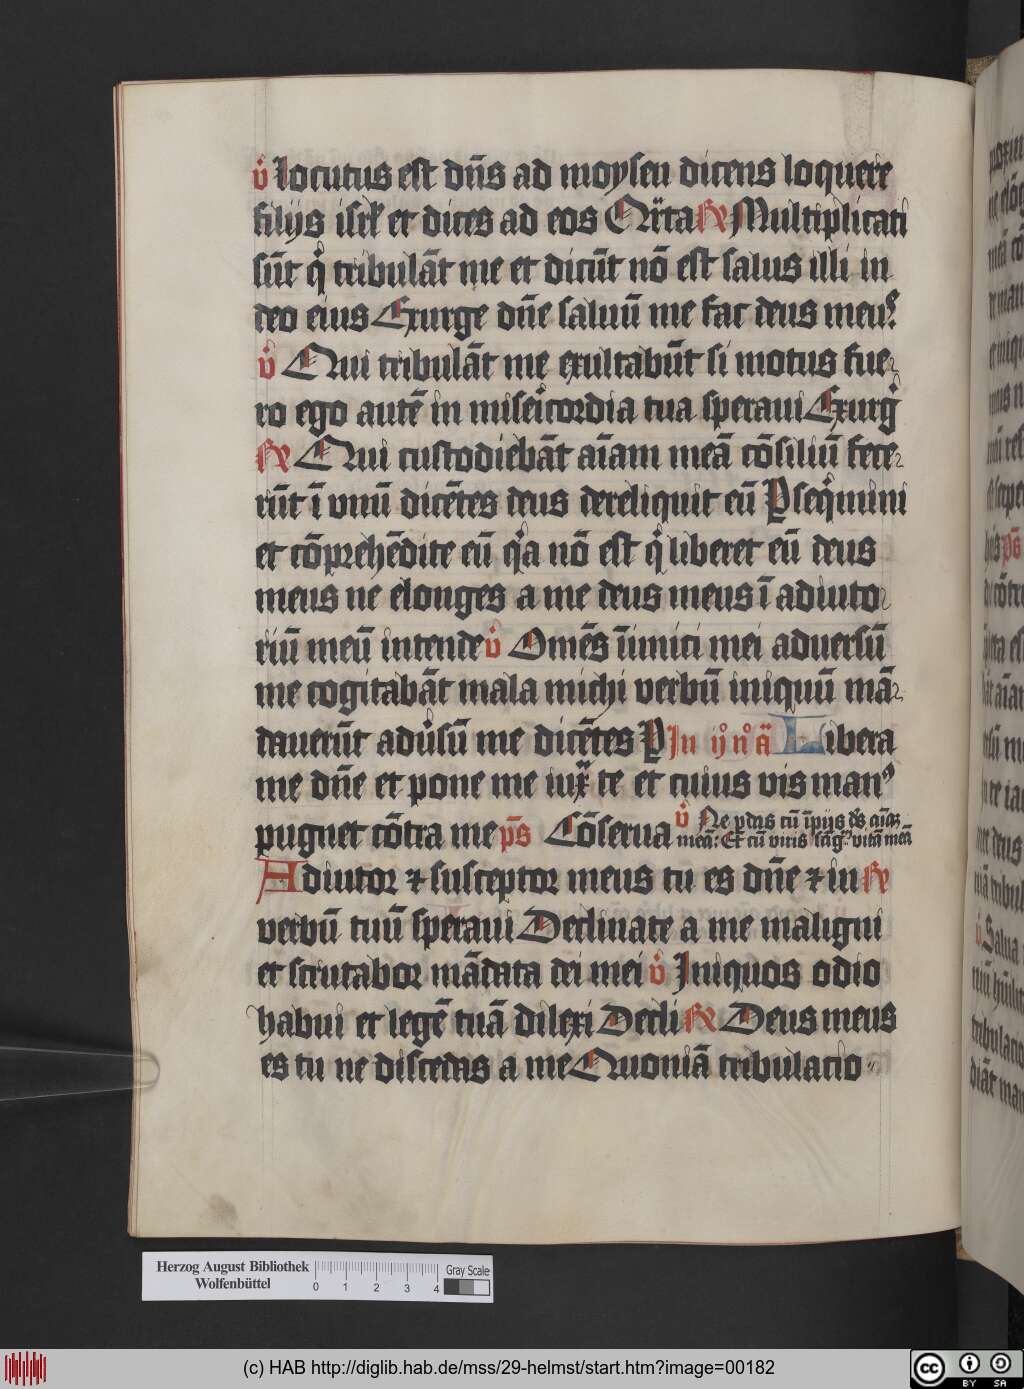 v̊ Locutus est dn̄s ad moysen dicens loquere
filijs isrl̄ et dices ad eos Cr̄ta R Multiplicati
sūt qͥ tribulāt me et dicūt nō est salus illi in
deo eius Exurge dn̄e saluū me fac deus meus
v̊ Qui tribulāt me exultabūt si motus fue-
ro ego autē in misericordia tua speraui Exurg
R Qui custodiebāt aīam meā cōsiliū fece-
rūt ī vnū dicētes deus dereliquit eū Pseqͥmini
et cōprehēdite eū qͥa nō est qͥ liberet eū deus
meus ne elonges a me deus meus ī adiuto-
riū meū intende v̊ Omēs īimici mei aduersū
me cogitabāt mala michi verbū iniquū mā-
dauerūt adūsū me dicētes P In ij̊ n̊ ā Libera
me dn̄e et pone me iux̄ te et cuius vis man⁹
pugnet cōtra me ps̄ Cōserua v̊ Ne pdas cū īpijs ds̄ aīaꝫ
meā: Et cū viris sāgͥ vitā meā
Adiutor ⁊ susceptor meus tu es dn̄e ⁊ in R
verbū tuū speraui Declinate a me maligni
et scrutabor mādata dei mei v̊ Iniquos odio
habui et legē tuā dilexi Decli R Deus meus
es tu ne discedas a me Quoniā tribulacio
Herzog August Bibliothek
Wolfenbüttel
0 1 2 3 4
Gray Scale
(c) HAB http://diglib.hab.de/mss/29-helmst/start.htm?image=00182
cc BY SA